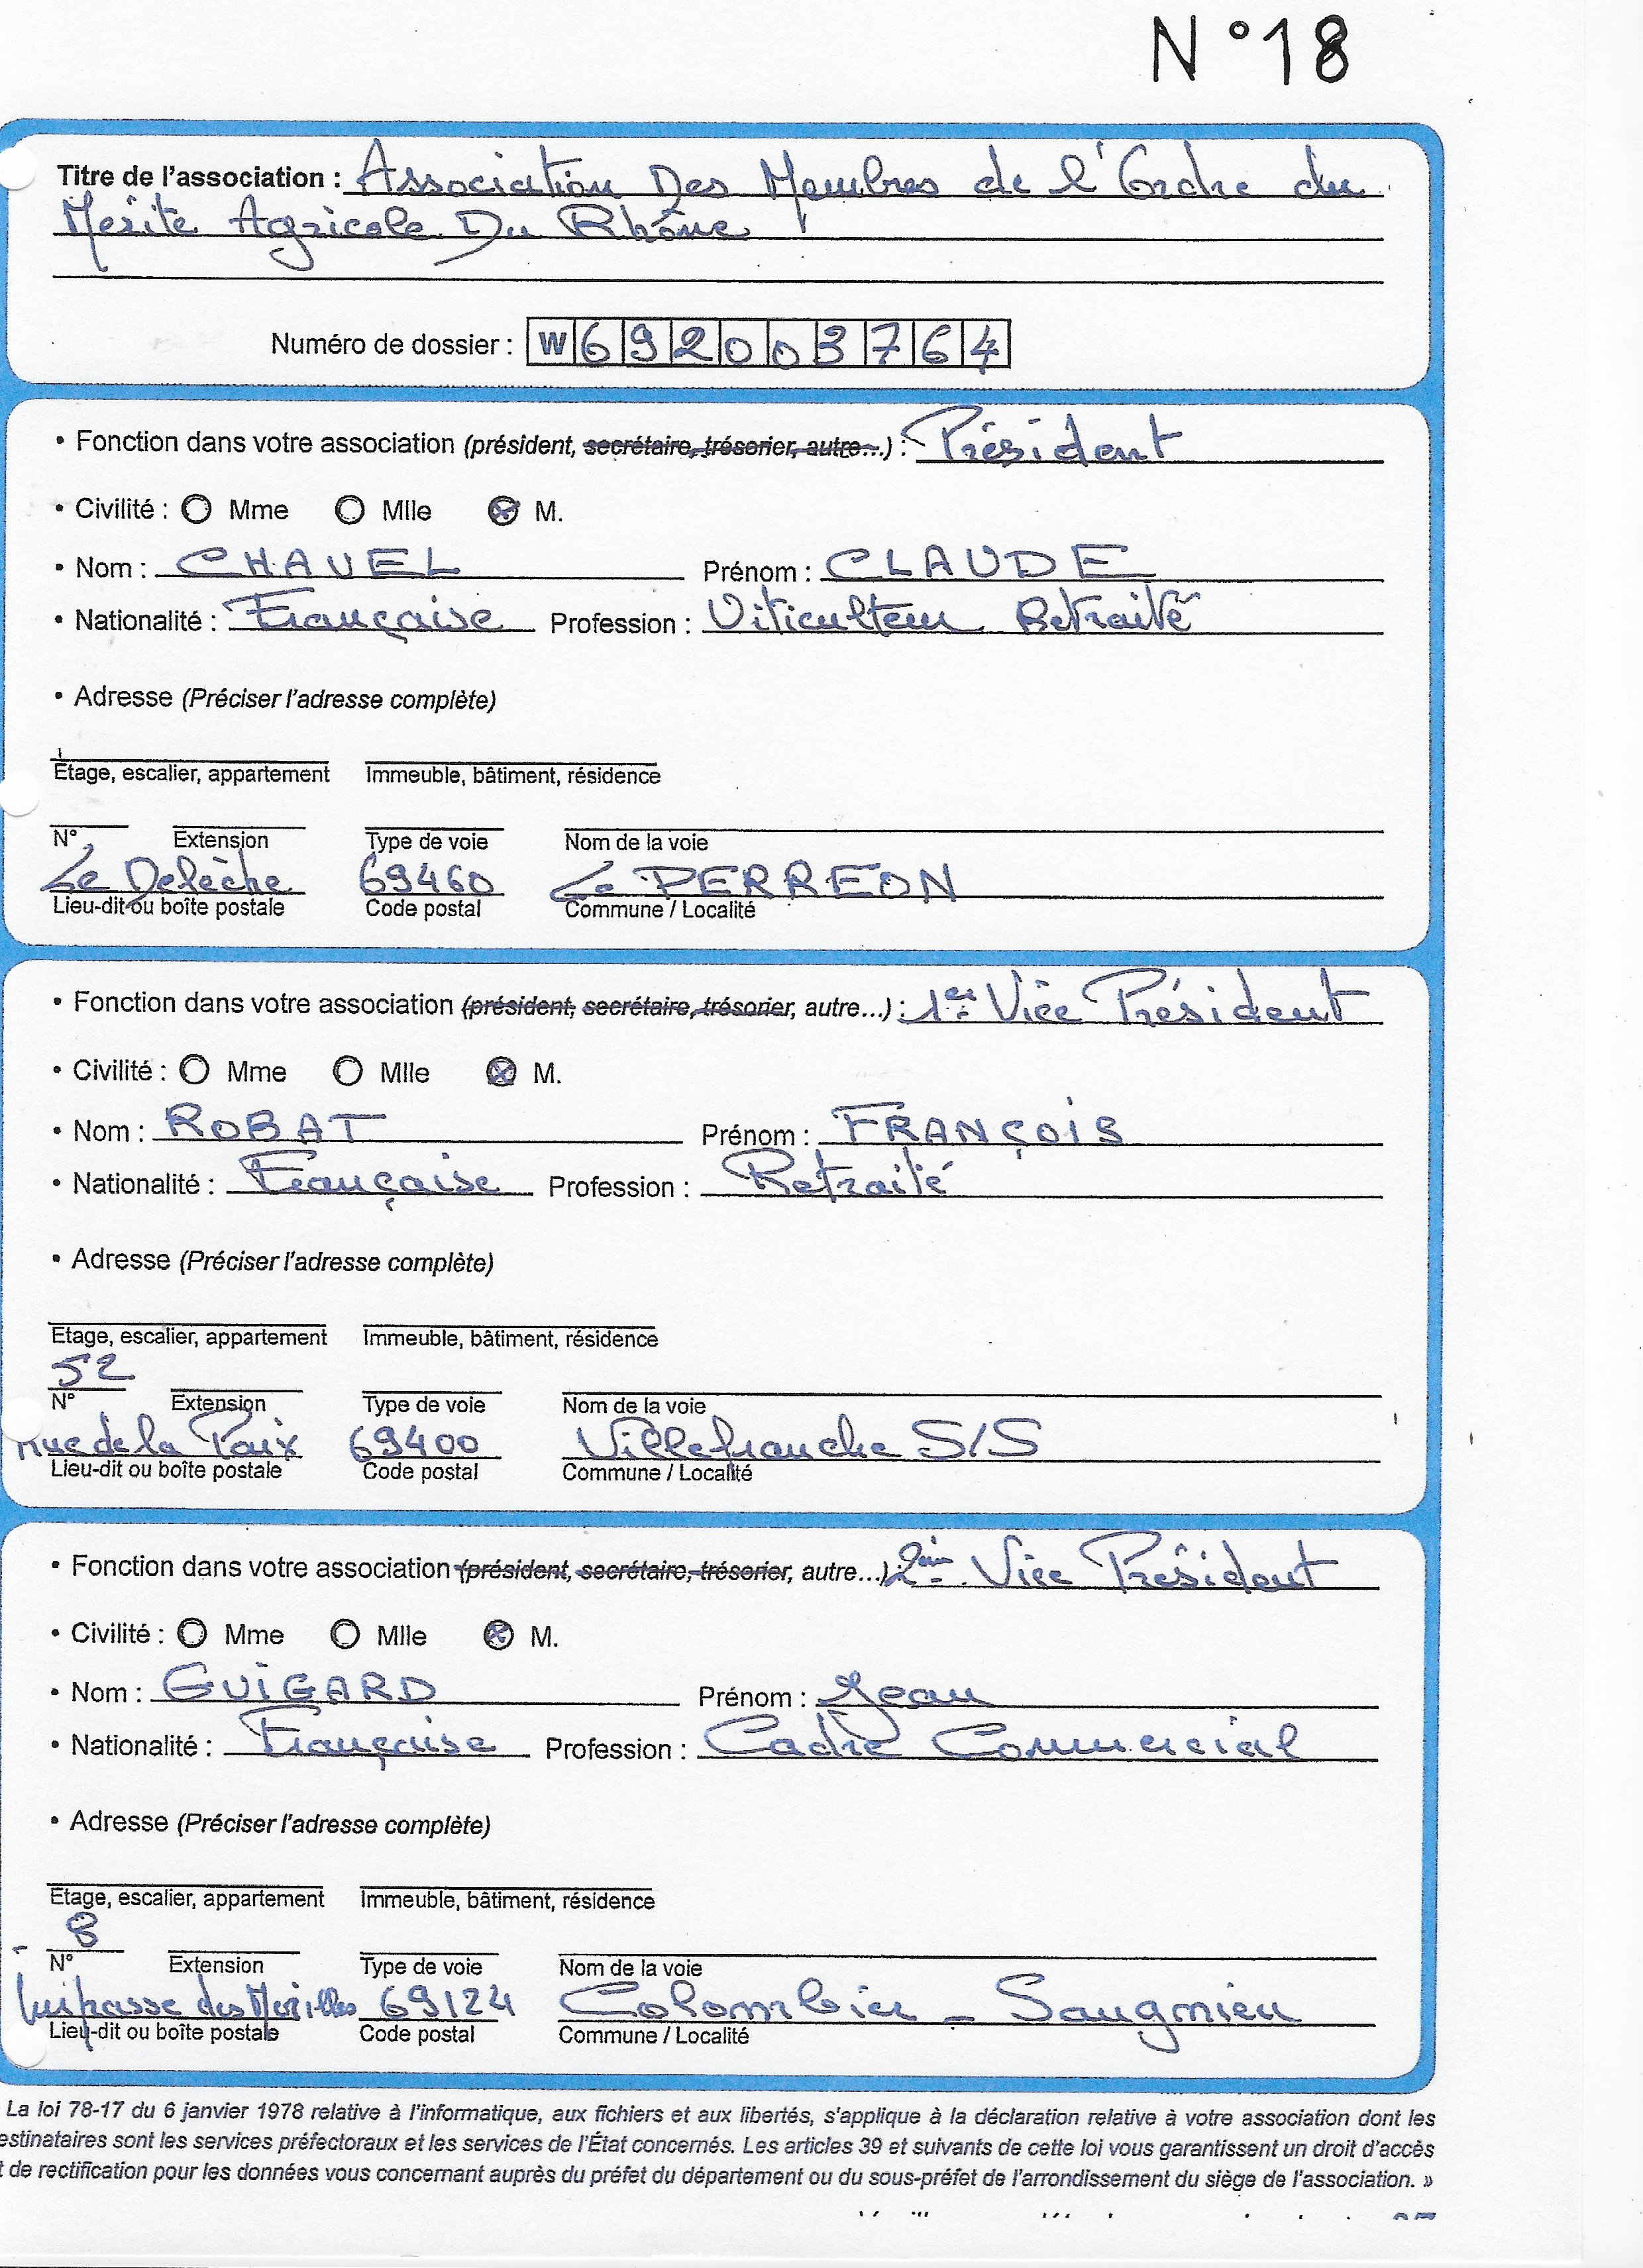 N°18
Titre de l'association : Association Des Membres de l'Ordre du
Mérite Agricole Du Rhône
Numéro de dossier : W692003764
• Fonction dans votre association (président, secrétaire, trésorier, autre...) : Président
• Civilité : Mme Mlle M.
• Nom : CHAVEL Prénom : CLAUDE
• Nationalité : Française Profession : Viticulteur Retraité
• Adresse (Préciser l'adresse complète)
Etage, escalier, appartement Immeuble, bâtiment, résidence
N° Extension Type de voie Nom de la voie
Le 69460 Le PERREON
Lieu-dit ou boîte postale Code postal Commune / Localité
• Fonction dans votre association (président, secrétaire, trésorier, autre...) : 1er Vice Président
• Civilité : Mme Mlle M.
• Nom : ROBAT Prénom : FRANÇOIS
• Nationalité : Française Profession : Retraité
• Adresse (Préciser l'adresse complète)
Etage, escalier, appartement Immeuble, bâtiment, résidence
52
N° Extension Type de voie Nom de la voie
rue de la Paix 69400 Villefranche S/S
Lieu-dit ou boîte postale Code postal Commune / Localité
• Fonction dans votre association (président, secrétaire, trésorier, autre...) : 2ème Vice Président
• Civilité : Mme Mlle M.
• Nom : GUIGARD Prénom : Jean
• Nationalité : Française Profession : Cadre Commercial
• Adresse (Préciser l'adresse complète)
Etage, escalier, appartement Immeuble, bâtiment, résidence
8
N° Extension Type de voie Nom de la voie
Impasse des 69124 Colombier - Saugnieu
Lieu-dit ou boîte postale Code postal Commune / Localité
La loi 78-17 du 6 janvier 1978 relative à l'informatique, aux fichiers et aux libertés, s'applique à la déclaration relative à votre association dont les
estinataires sont les services préfectoraux et les services de l'État concernés. Les articles 39 et suivants de cette loi vous garantissent un droit d'accès
t de rectification pour les données vous concernant auprès du préfet du département ou du sous-préfet de l'arrondissement du siège de l'association. »